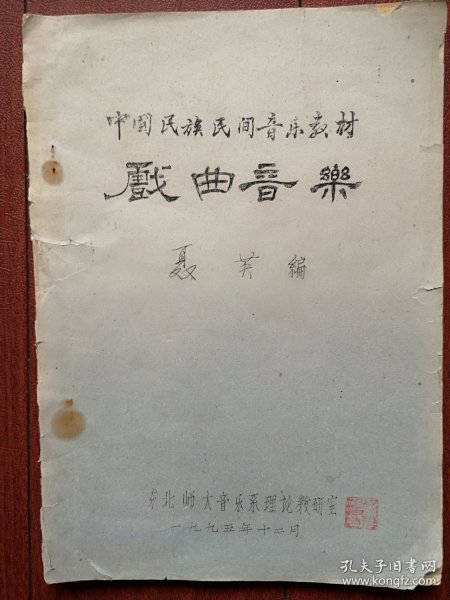 中国民族民间音乐教材
戲曲音樂
聂英编
东北师大音乐系理论教研室
一九九五年十二月
孔夫子旧书网
www.kongfz.com